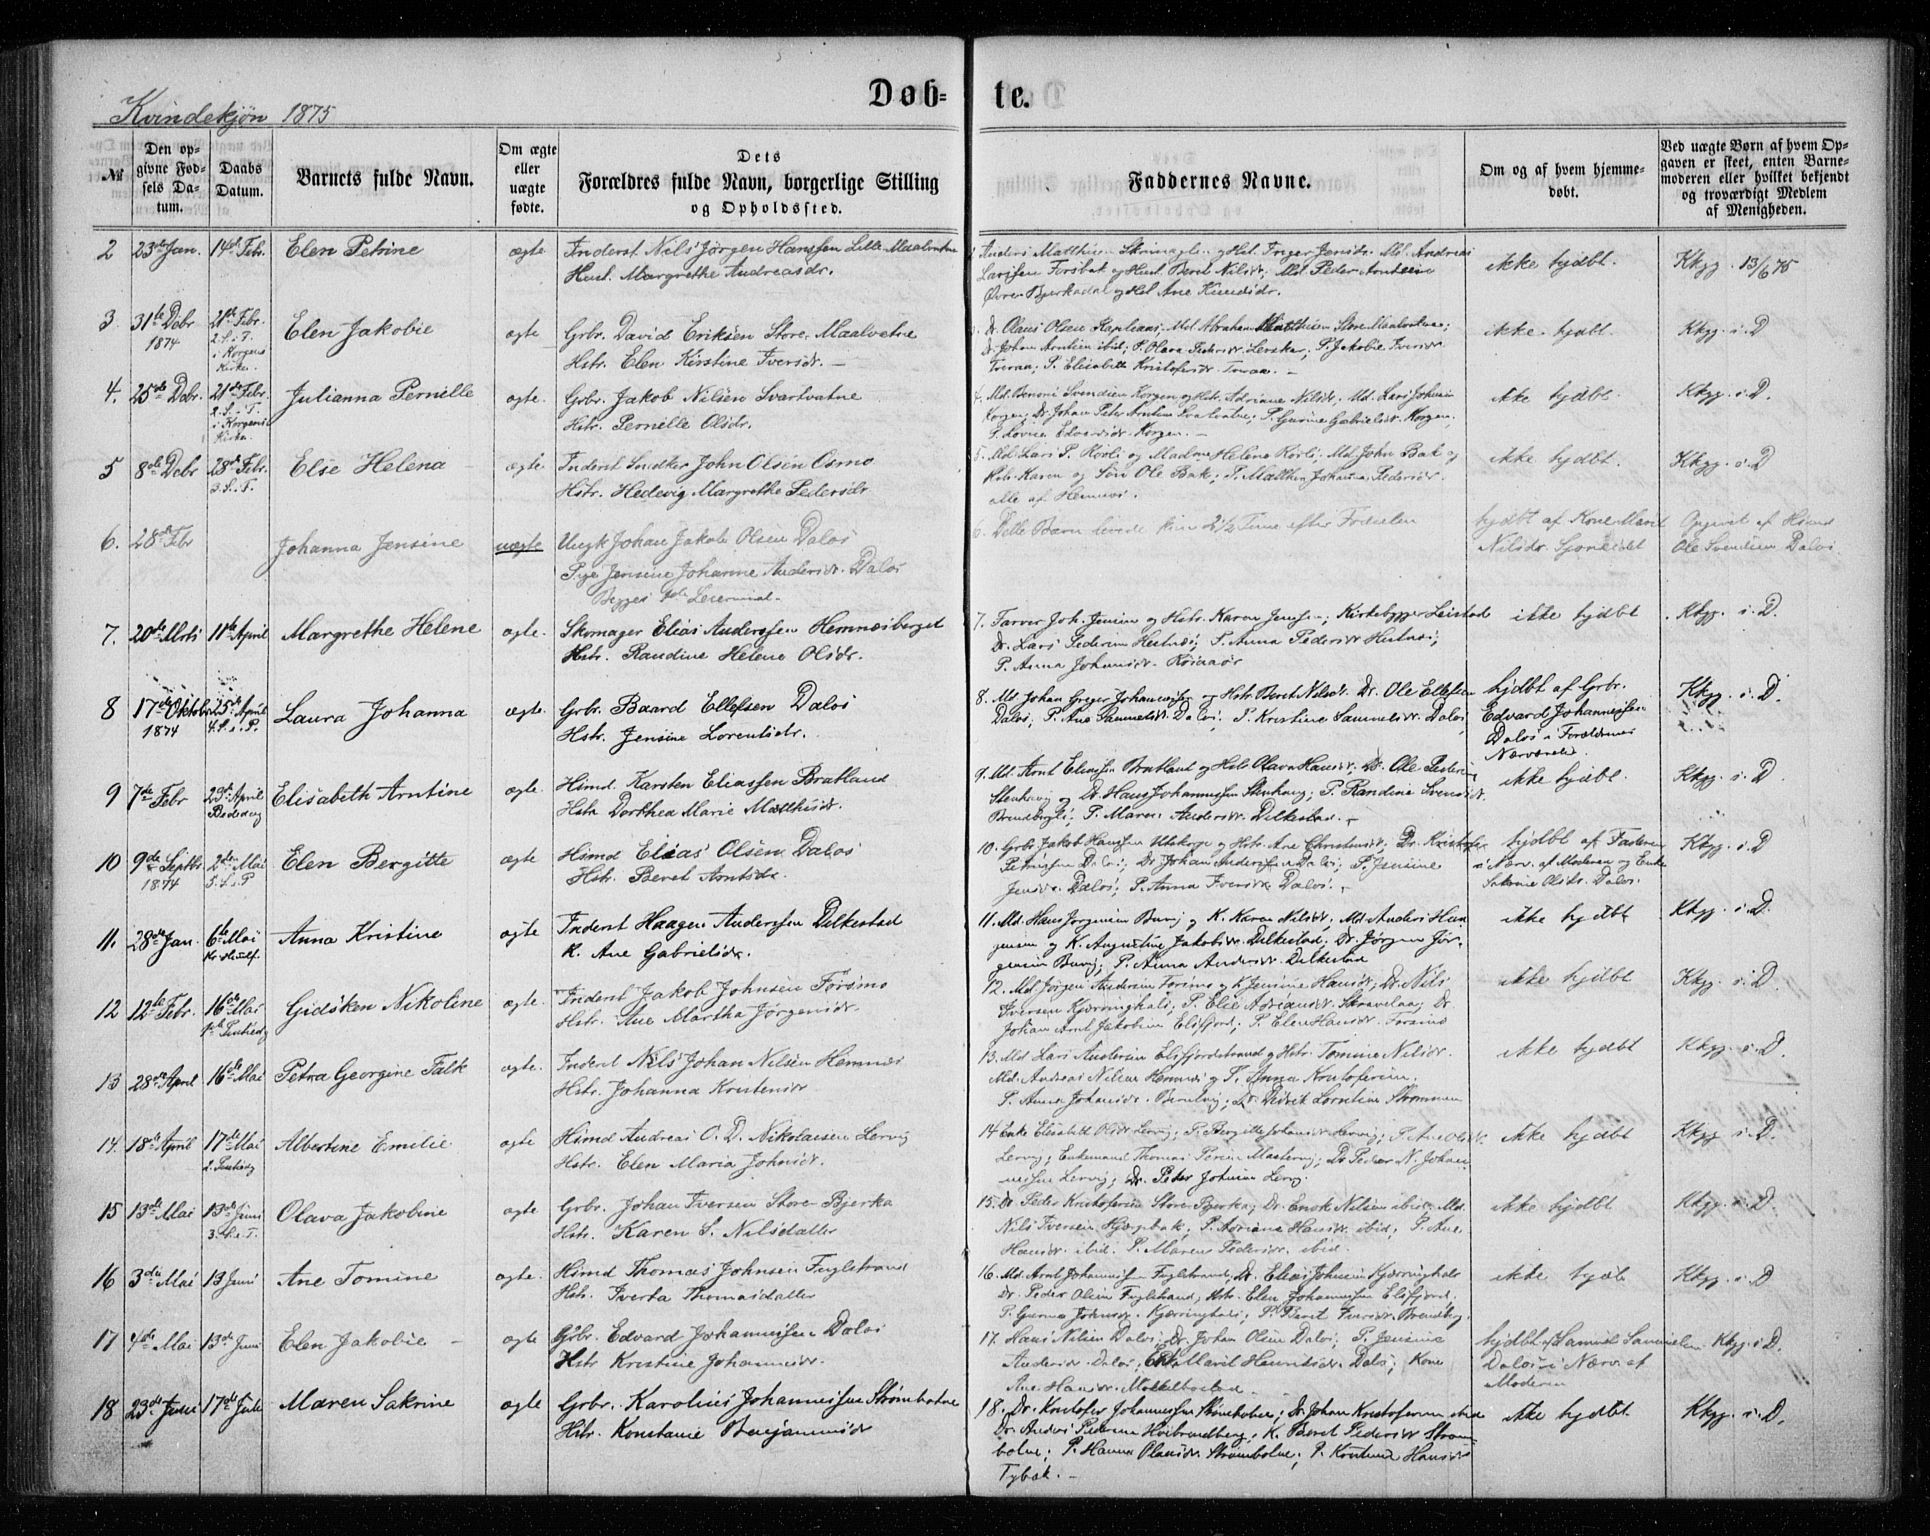 Døb- te.
Kvindekjøn 1875
№
Den op-
givne Fød-
sels Da-
tum.
Daabs
Datum.
Barnets fulde Navn.
Om ægte
eller
uægte
fødte.
Dets
Forældres fulde Navn, borgerlige Stilling
og Opholdssted.
Faddernes Navne.
Om og af hvem hjemme-
døbt.
Ved uægte Børn af hvem Op-
gaven er skeet, enten Barne-
moderen eller hvilket bekjendt
og troværdigt Medlem
af Menigheden.
2 23de Jan. 14de Febr. Elen Petrine ægte Inderst Nils Jørgen Hanssen Lille Maalvatne
Hust. Margrethe Andreasdr.
Anders Matthisen og Hst. Inger Jensdr. Md. Andreas
Larssen Forsbak og Hust. Beret Nilsdr. Md. Peder Arntsen
Øvre Bjerkadal og Hst. Ane Knudsdr.
ikke hjdbt. Kkgg. 13/6 75
3. 31te Debr. 1874 21de Febr. 2. S. i F. i Korgens Kirke. Elen Jakobie ægte Grbr. David Eriksen Store Maalvatne
Hstr. Elen Kirstine Iversdr. –
Dr. Olaus Olsen Md. Abraham Matthisen Store Maalvatne;
Dr. Johan Arntsen ibid; P. Olava Pedersdr. Lerskar; P. Jakobie Iversdr.
Tveraa; P. Elisabeth Kristofersdr. Tveraa. –
ikke hjdbt. Kkgg. i. D
4. 25de Debr. 21de Febr. 2. S. i F. i Korgens Kirke. Julianna Pernille ægte. Grbr. Jakob Nilsen Svartvatne
Hstr. Pernille Olsdr.
4. Md. Benoni Svendsen Korgen og Hstr. Adriane Nilsdr. Md. Lars Johnsen
Korgen; Dr. Johan Peter Arntsen Svartvatne; P. Gurine Gabrielsdr. Korgen;
P. Lovise Edvardsdr. Korgen. –
ikke hjdbt. Kkgg. i. D.
5 8de Debr 28de Febr. 3. S. i F. Else Helena – ægte. Inderst Snedker John Olsen Osmo
Hstr. Hedevig Margrethe Pedersdr
5. Md. Lars P. Korli og Madme Helena Korli; Md. John Bak og
Hstr. Karen og Søn Ole Bak; P. Johanna Pedersdr.
alle af Hemnes.
ikke hjdbt. Kkgg. i. D
6. 28de Febr Johanna Jensine uægte Ungk Johan Jakob Olsen Dalos
Pige Jensine Johanne Andersdr. Dalos
Begges 1ste Leiermaal.
6. Dette Barn levede kun 2½ Time efter Fødselen
hjdbt af Kone Marit
Nilsdr. Sponeidet
Opgivet af Hsmd
Ole Svendsen Dalos.
7. 20de Marts 11te April Margrethe Helene ægte. Skomager Elias Anderssen Hemnesberget
Hstr. Randine Helene Olsdr.
7. Farver Joh. Jensen og Hstr. Karen Jensen; Kirkebygger Leistad
Dr. Lars Pedersen Hestnes; P. Anna Pedersdr Hestnes;
P. Anna Johansdr. Røsaaør
ikke hjdbt Kkgg. i. D.
8 17de Oktobr 1874 25de April 4. S. e. P. Laura Johanna ægte. Grbr. Baard Ellefsen Dalos
Hstr. Jensine Lorentsdr.
8. Md. Johan Greger Johannessen og Hstr. Beret Nilsdr. Dr. Ole Ellefsen
Dalos; P. Ane Samuelsdr. Dalos; P. Kristine Samuelsdr. Dalos
hjdbt af Grbr.
Edvard Johannessen
Dalos i Forældrenes
Nærværelse
Kkgg. i. D.
9 7de Febr 23de April Bededag Elisabeth Arntine ægte. Hsmd. Karsten Eliassen Bratland
Hstr. Dorthea Marie Matthisdr.
9. Md. Arnt Eliassen Bratland og Hstr. Olava Hansdr; Dr. Ole Pedersen
Stenhaug og Dr. Hans Johannessen Stenhaug; P. Randine Svensdr.
Brendberget; P. Maren Andersdr. Dilkestad. –
ikke hjdbt. Kkgg. i. D
10 9de Septbr 1874 2den Mai 5. S. e. P Elen Bergitte ægte Hsmd Elias Olsen Dalos
Hstr. Beret Arntsdr.
10. Grbr Jakob Hanssen Utskorpe og Hstr. Ane Christensdr. Dr. Kristofer
Petersen Dalos; Dr. Johan Anderssen Dalos; P. Jensine
Jensdr. Dalos; P. Anna Iversdr. Dalos. –
hjdbt af Faderen
i Nærv. af Moderen og Enke
Sakrine Olsdr. Dalos.
Kkgg. i. D
11. 28de Jan. 6te Mai Kr. Himlf. Anna Kristine ægte Inderst Haagen Anderssen Dilkestad
K. Ane Gabrielsdr.
11. Md. Hans Jørgensen Burvj og K. Karen Nilsdr. Md. Anders Han-
gensen og K. Augustine Jakobsdr. Dilkestad; Dr. Jørgen Jør-
gensen Burvj; P. Anna Andersdr. Dilkestad
ikke hjdbt Kkgg. i. D.
12 12te Febr. 16de Mai 1ste Pintsedag Gidsken Nikoline ægte. Inderst Jakob Johnsen Forsmo
Hstr. Ane Martha Jørgensdr.
12. Md Jørgen Andersen Forsmo og K Jensine Hansdr; Dr. Nils
Iversen Kjærringhals; P. Else Adriansdr. Skravelaa; Dr
Johan Arnt Jakobsen Elsfjord; P. Elen Hansdr. Forsmo
ikke hjdbt Kkgg. i. D.
13 28de April 16de Mai Petra Georgine Falk ægte. Inderst Nils Johan Nilsen Hemnes
Hstr. Johanna Kristensdr
13. Md Lars Andersen Elsfjordstrand og Hstr. Tomine Nilsdr.
Md. Andreas Nilsen Hemnes og P. Anna Kristofersen.
P. Anna Johansdr. ; Dr. Didrik Lorntsen Strømmen
ikke hjdbt Kkgg. i. D.
14. 18de April 17de Mai 2. Pintsedg Albertine Emilie ægte Hsmd Andreas O. D. Nikolaisen Lervig
Hstr. Elen Maria Johnsdr.
14 Enke Elisabeth Olsdr Lervig; P. Bergitte Johansdr Lervig; P. Ane Olsdr
Lervig; Enkemand Thomas Persen Mastervig; Dr Peder N. Johan-
nessen Lervig; Dr. Peter Johnsen Lervg.
ikke hjdbt Kkgg. i. D.
15 13de Mai 13de Juni 3. S. e. T. Olava Jakobine ægte Grbr. Johan Iversen Store Bjerka
Hstr. Karen S. Nilsdatter
15. Dr. Peder Kristofersen Store Bjerka; Dr. Enok Nilsen ibid; Md.
Nils Iversen Hjægebak; P. Adriana Hansdr. ibid; P. Ane
Hansdr. ibid. P. Maren Pedersdr. ibid.
ikke hjdbt Kkgg. i. D.
16 3die Mai 13 Juni Ane Tomine ægte. Hsmd Thomas Johnsen Fuglstrand
Hstr. Iverta Thomasdatter
16. Md. Arnt Johannessen Fuglstrand; Dr. Elias Johnsen Kjærringhals
Dr. Peder Olsen Fuglstrand; Hstr. Elen Johannessen Elsfjord.
P. Gurina Johnsdr. Kjærringhals; P. Beret Iversdr. Brendbrg.
ikke hjdb Kkgg. i. D
17 4de Mai 13de Juni Elen Jakobie – ægte Grbr. Edvard Johannessen Dalos
Hstr Kristine Johannesdr.
17. Hans Nilsen Dalos; Dr. Johan Olsen Dalos; P. Jensine
Andersdr. Dalos; Marit Henriksdr. Dalos; Kone
Ane Hansdr.
hjdbt af Samuel Samuelsn
Dalos i Nærv. af
Moderen
Kkgg. i. D.
18 23de Juni 17de Juli Maren Sakrine ægte Grbr. Karolius Johannessen Strømbotne
Hstr. Konstanse Benjaminsdr
18. Dr. Kristofer Johannessen Strømbotne; Dr. Johan Kristofersen ibid
Dr. Anders Pedersen Hvitbrendberg; K. Beret Pedersdr Strøm-
botne; P. Hanna Olausdr. Strømbotne; P. Kristine Hansdr
Tybæk. –
ikke hjdbt. Kkgg. i. D.